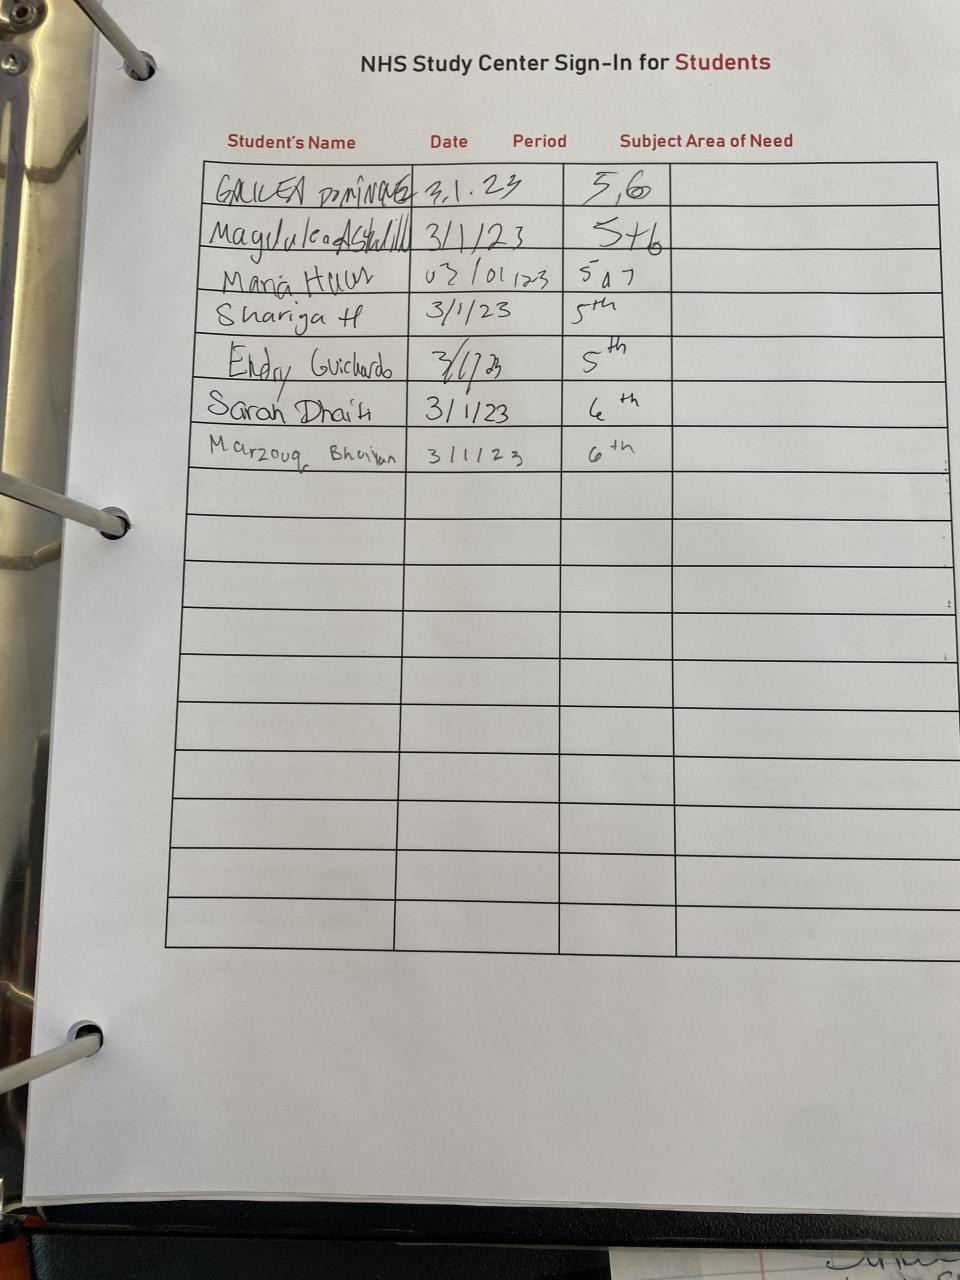 NHS Study Center Sign-In for Students
Student's Name Date Period Subject Area of Need
GALILEA DOMINGUEZ 3.1.23 5,6
3/1/23 5+6
Maria 03/01/23 5 a 7
Shariga H 3/1/23 5th
Endry Guichardo 3/1/23 5th
Sarah Dhaiti 3/1/23 6th
Marzouq Bhuiyan 3/1/23 6th